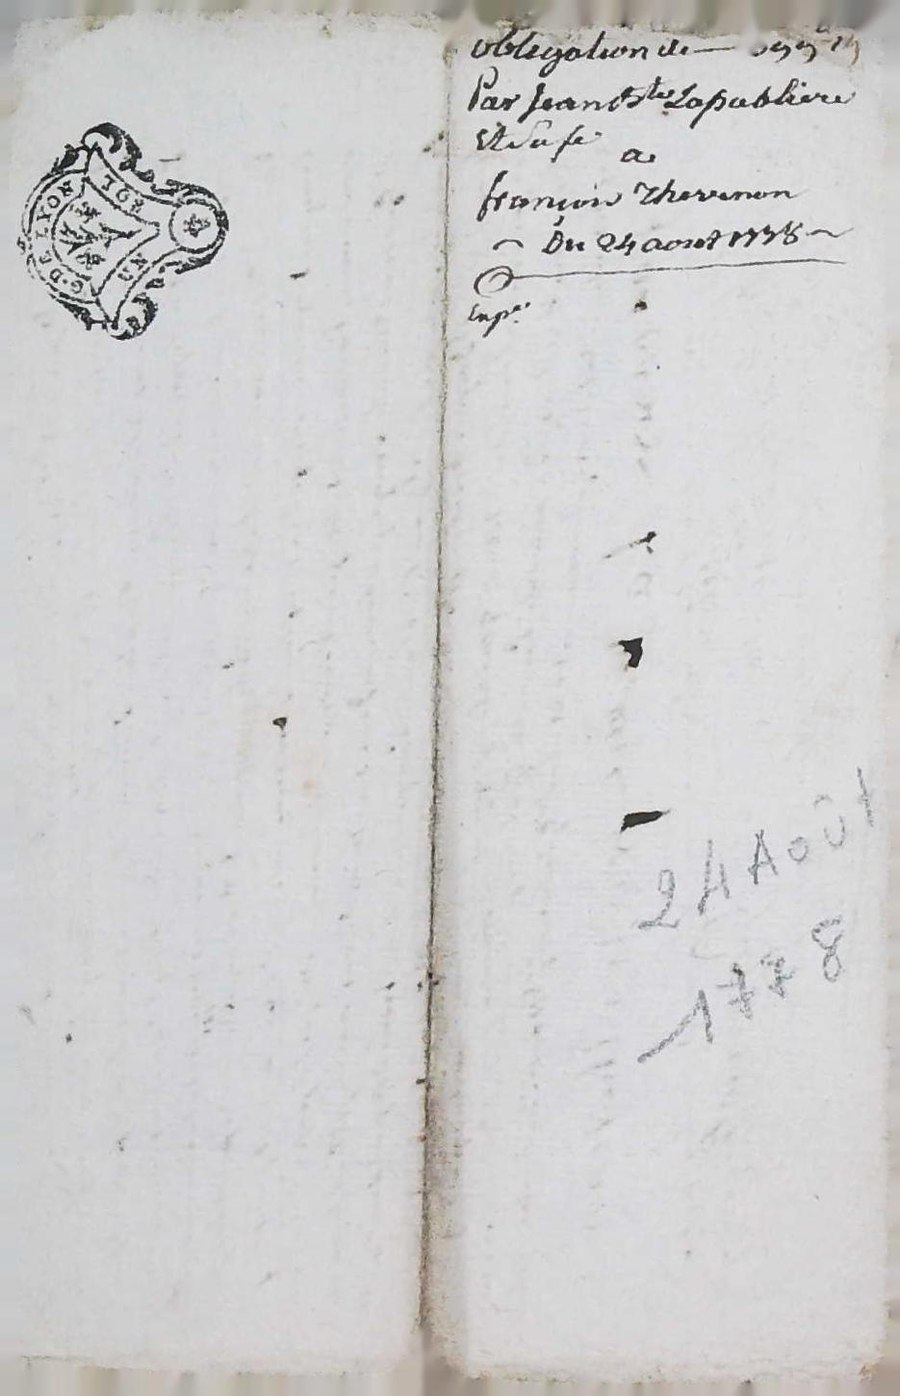 G. DE LYON
UN SOL
obligation de —
Par Jean Bte Lapabliere
Et Sa fe
a
françois Thevenon
Du 24 aout 1778
Expe
24 Août
1778